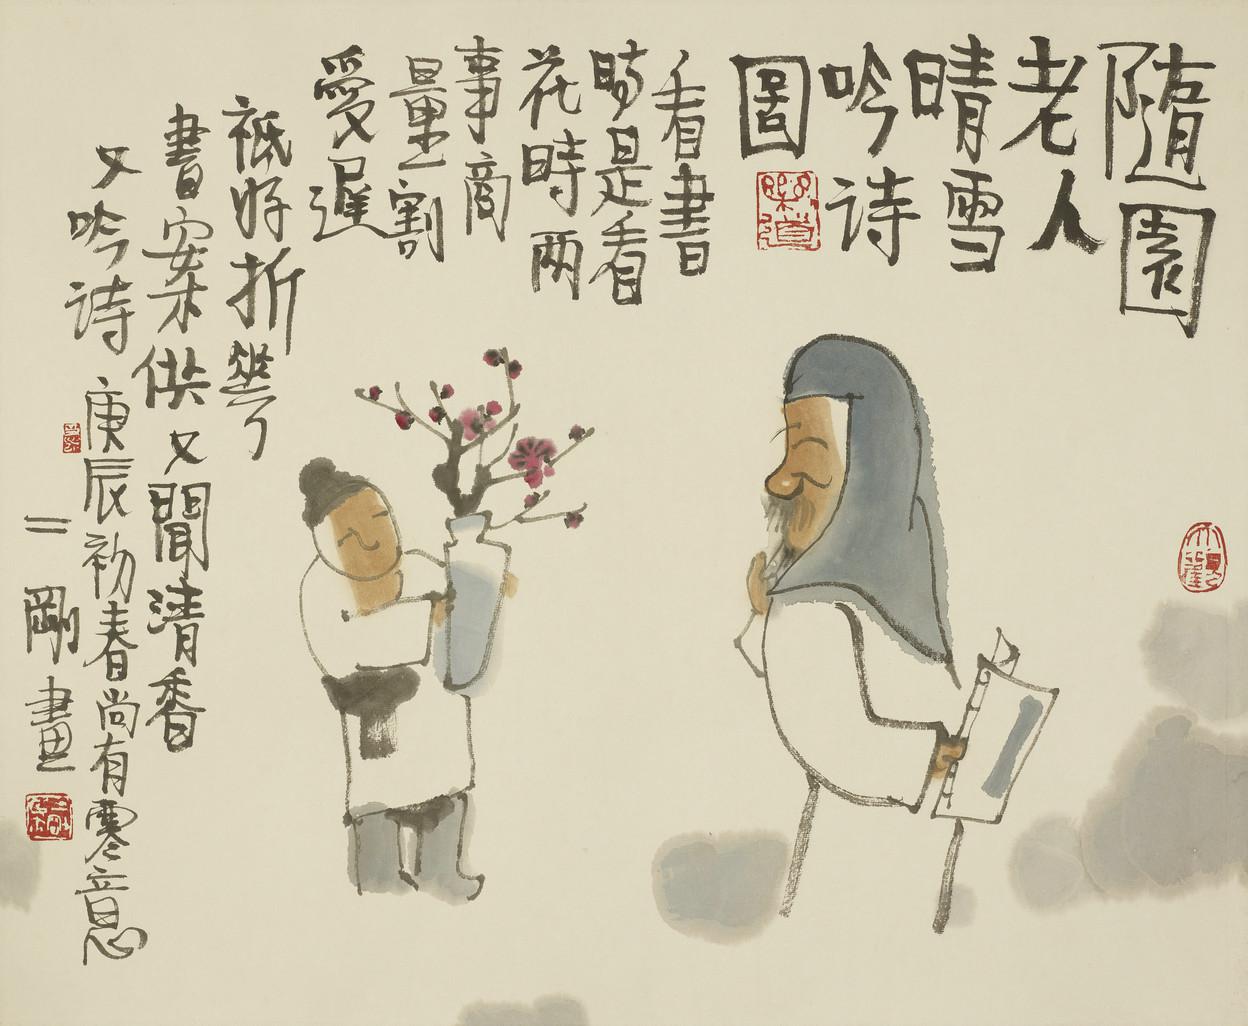 随園
老人
晴雪
吟诗
圖
看書
時是看
花時两
事商
量割
愛遲
祗好折華
書案供又聞清香
又吟诗 庚辰初春尚有寒意
二剛畫